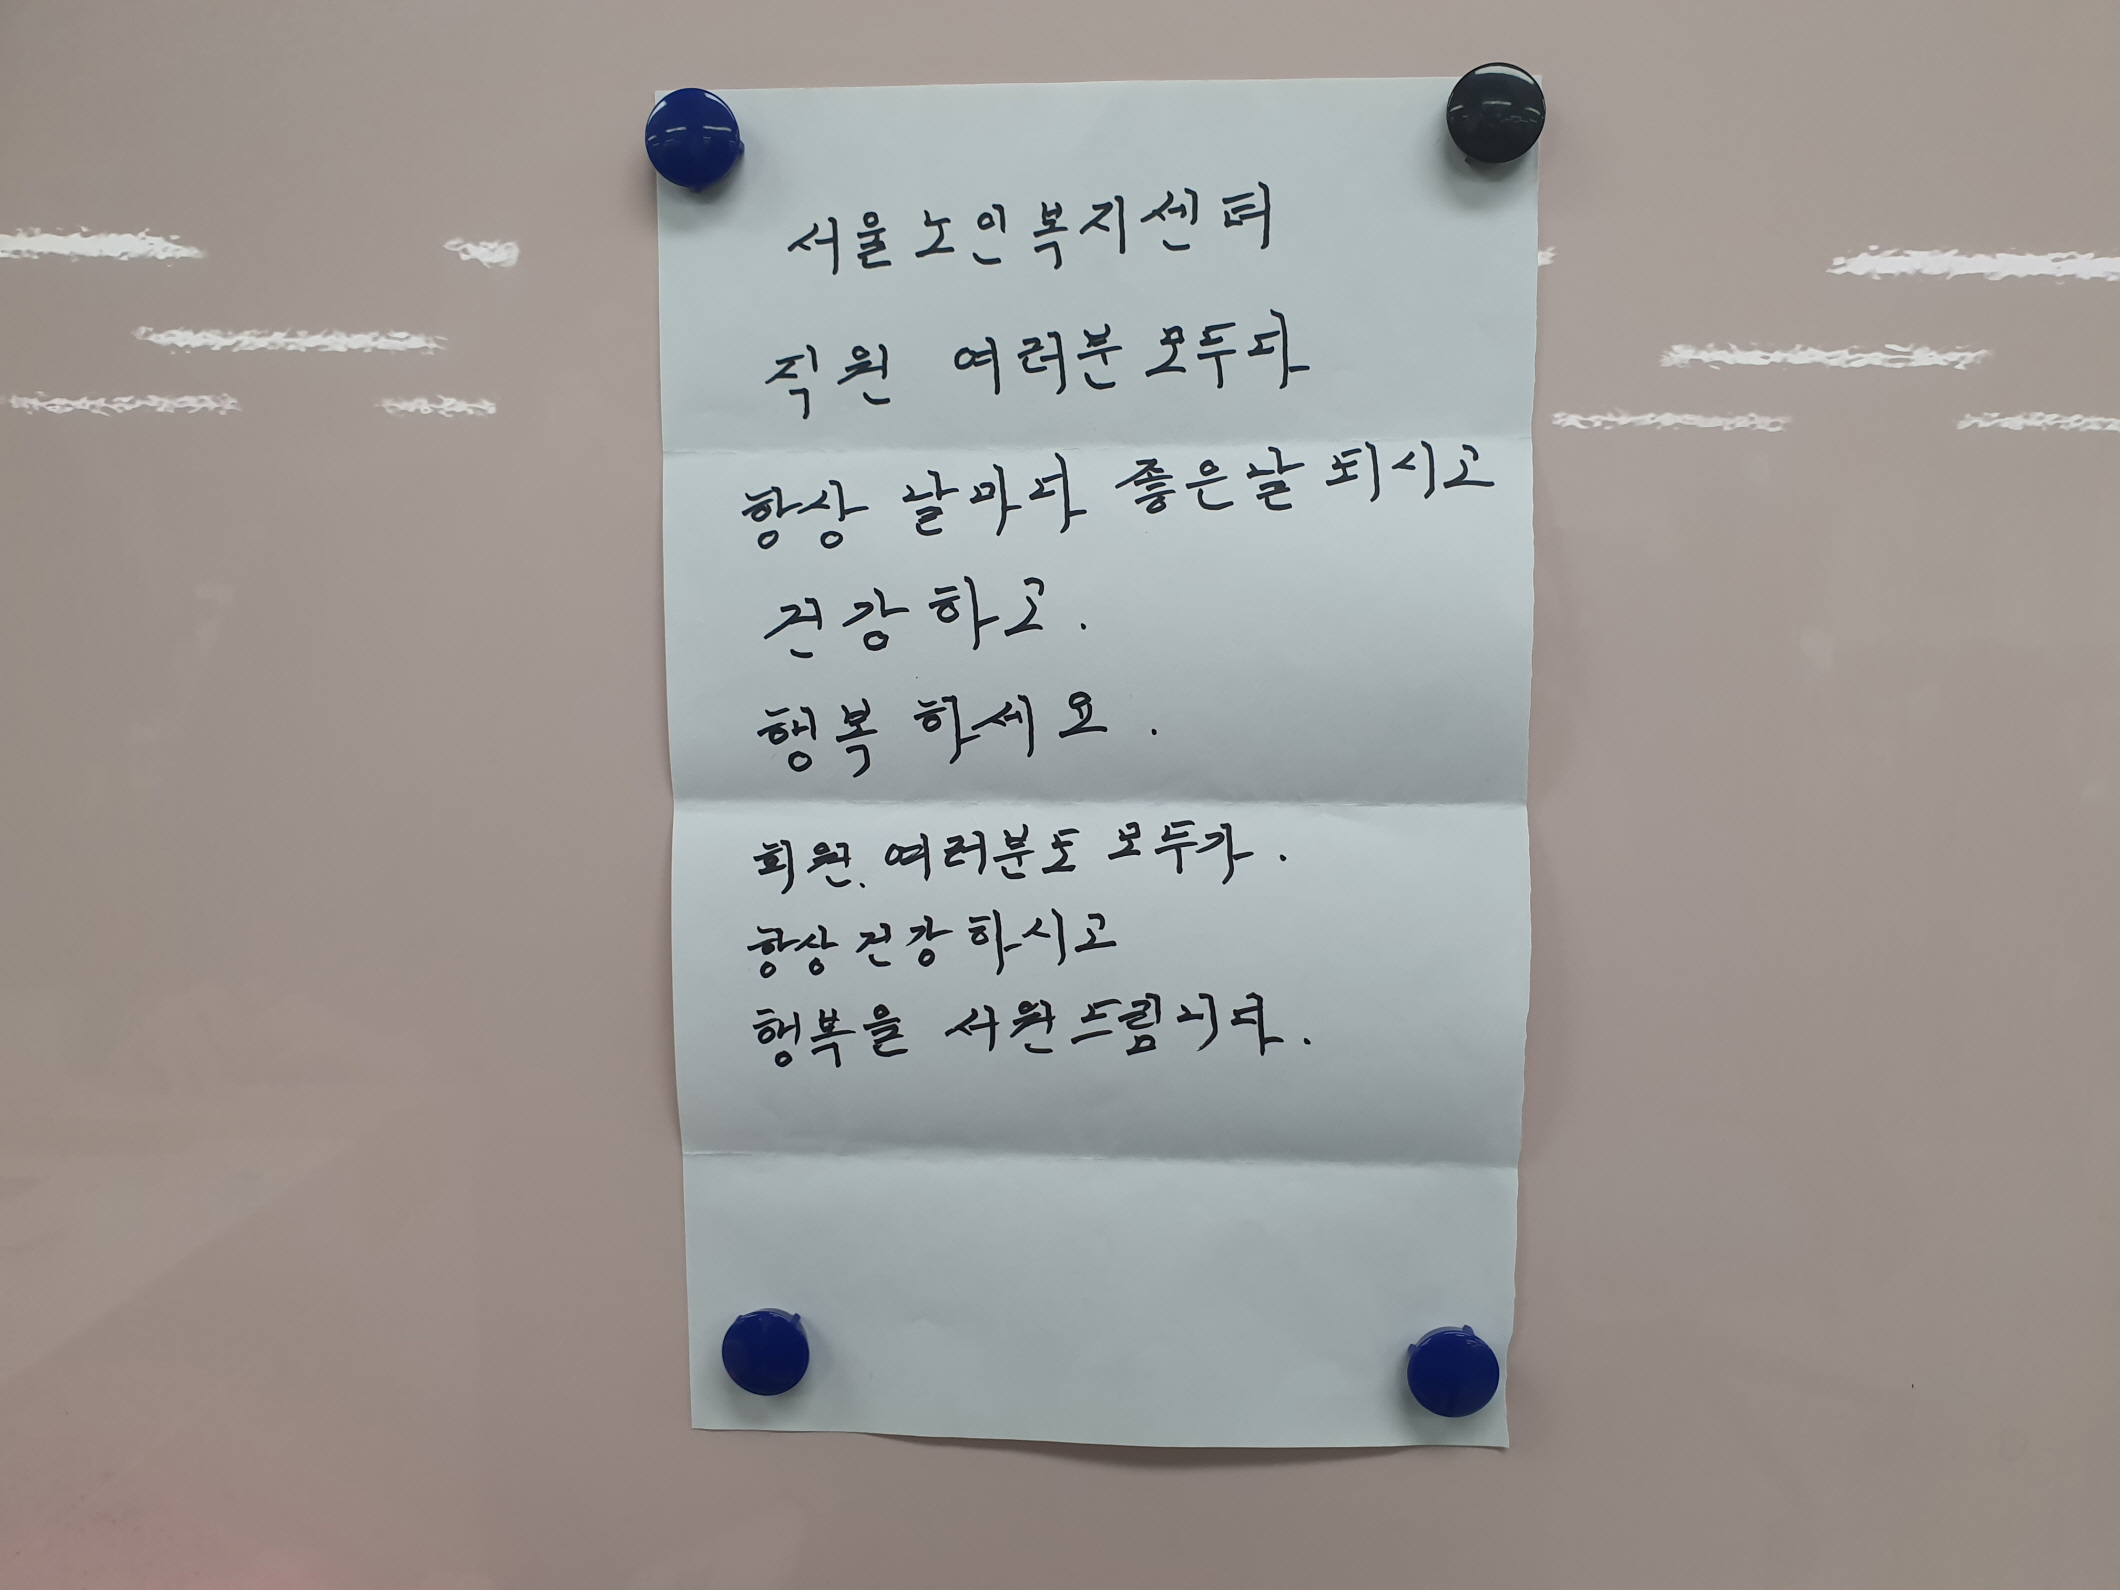 서울노인복지센터
직원 여러분 모두다
항상 날마다 좋은날 되시고
건강하고.
행복하세요.
회원. 여러분도 모두가.
항상건강하시고
행복을 서원드림니다.